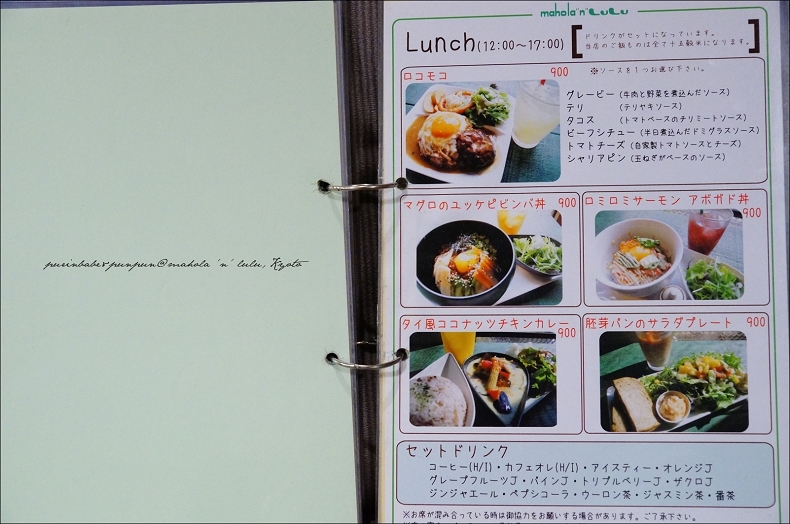 purinbabe&punpun@mahola 'n' lulu, Kyoto
mahola"n"LuLu
Lunch(12:00~17:00)
ドリンクがセットになっています。
当店のご飯ものは全て十五穀米になります。
ロコモコ 900
※ソースを1つお選び下さい。
グレービー (牛肉と野菜を煮込んだソース)
テリ (テリヤキソース)
タコス (トマトベースのチリミートソース)
ビーフシチュー (半日煮込んだドミグラスソース)
トマトチーズ (自家製トマトソースとチーズ)
シャリアピン (玉ねぎがベースのソース)
マグロのユッケビビンバ丼 900
ロミロミサーモン アボガド丼
900
タイ風ココナッツチキンカレー
900
胚芽パンのサラダプレート 900
セットドリンク
コーヒー(H/I)・カフェオレ(H/I)・アイスティー・オレンジJ
グレープフルーツJ・パインJ・トリプルベリーJ・ザクロJ
ジンジャエール・ペプシコーラ・ウーロン茶・ジャスミン茶・番茶
※お席が混み合っている時は御協力をお願いする場合があります。ご了承下さい。